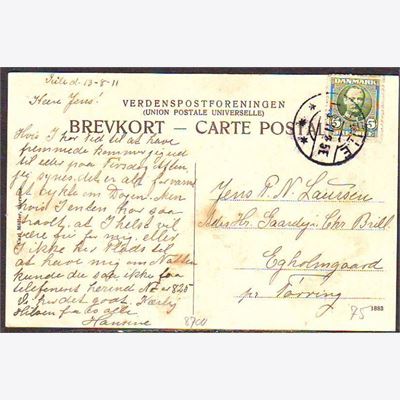 d. 13-8-11
Kære Jens!
VERDENSPOSTFORENINGEN
(UNION POSTALE UNIVERSELLE)
BREVKORT — CARTE POSTALE
DANMARK
5 5
Hvis I har tid til at have
fremmede kommer jeg ud
til eder paa Tirsdag Aften
jeg synes det er alt for varmt
at cykle om Dagen. Men
hvis I enten har saa
travlt, at I helst vil
være fri for mig, eller
I ikke har Plads til
at have mig om Natten
kunde du saa ikke faa
telefoneret herind No 825
det godt. Kærlig
Hilsen fra os alle
Hansine
Jens P. N. Laursen
Adr. Hr. Gaardejer Chr. Brill
Egholmgaard
pr. Tørring
1885
75
8700